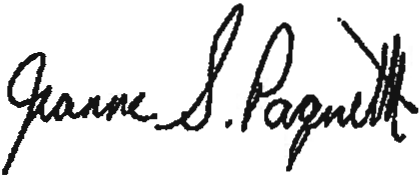 Jeanne S. Paquett